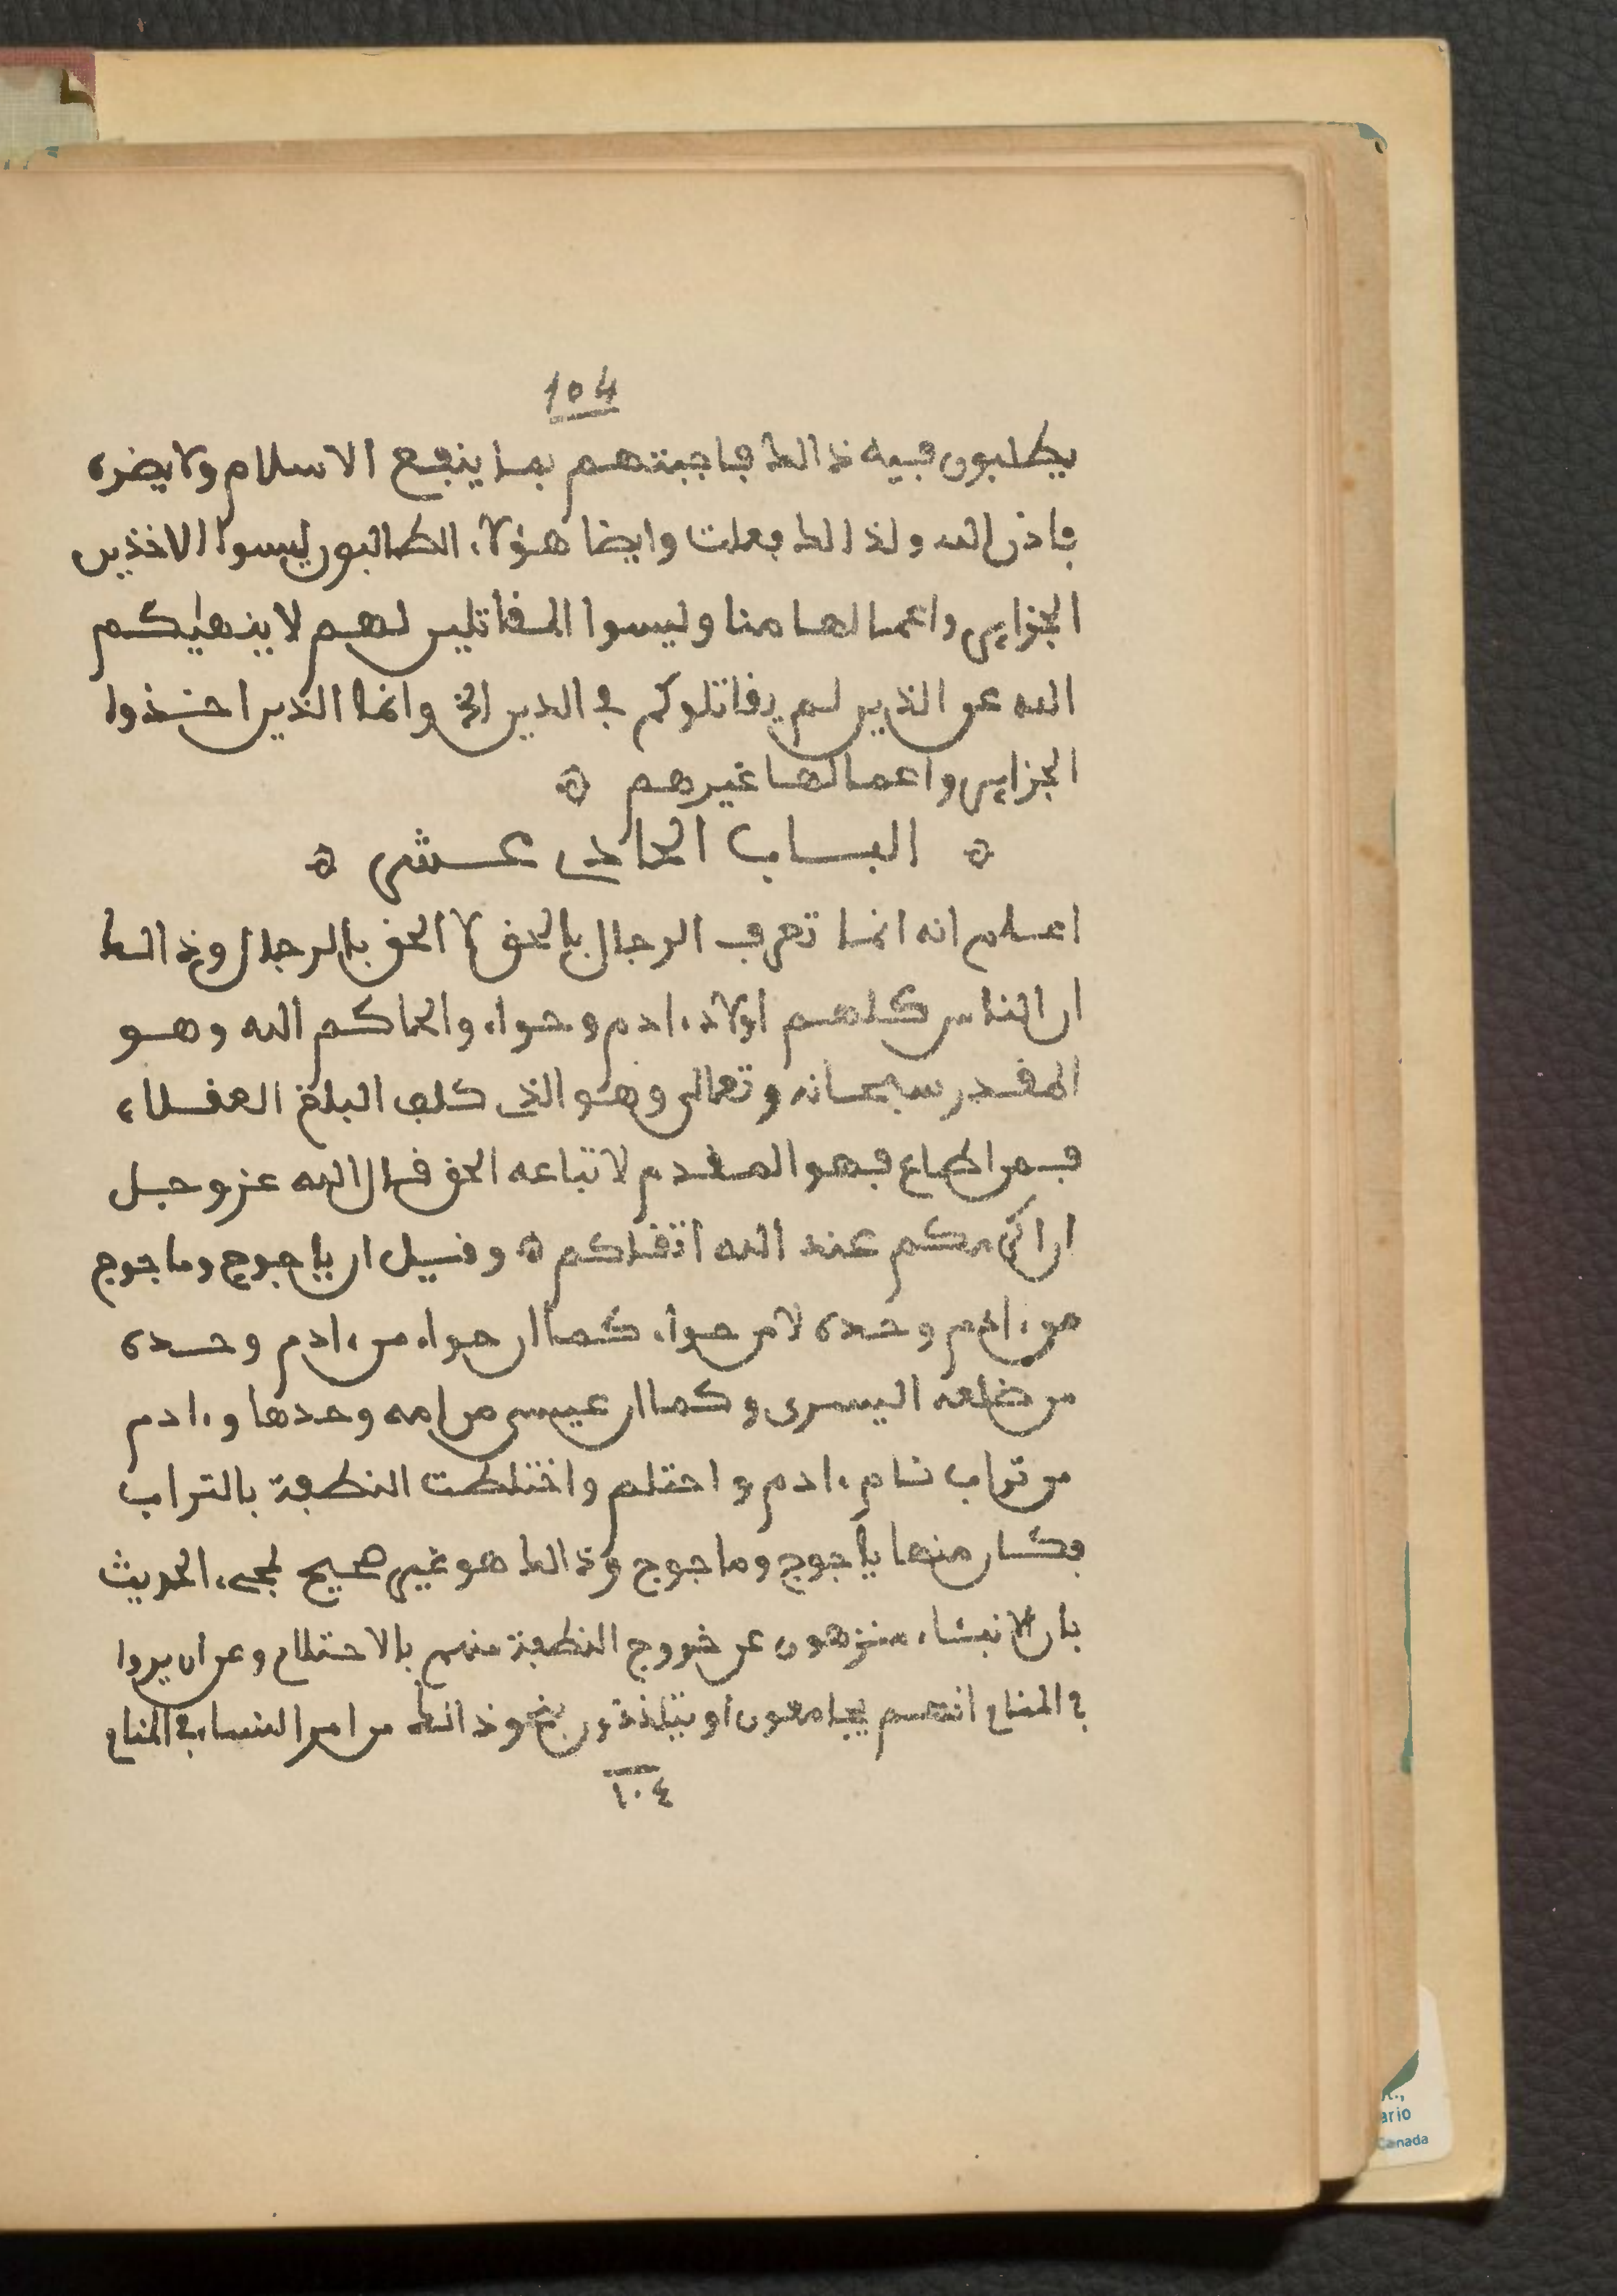 104
يطلبون فيه ذالك فاجبتهم بما ينفع الاسلام ولا يضره
باذن الله ولذالك فعلت وايضا هؤلاء الطالبون ليسوا الاخذين
الجزاير واعمالها منا وليسوا المقاتلين لهم لا ينهيكم
الله عن الذين لم يقاتلوكم في الدين الخ وانما الذين اخذوا
الجزاير واعمالها غيرهم ۞
۞ الباب الحادى عشر ۞
اعلم انه انما تعرف الرجال بالحق لا الحق بالرجال وذالك
ان الناس كلهم اولاد ءادم وحواء والحاكم الله وهو
المقدر سبحانه وتعالى وهو الذى كلف البلغ العقلاء
فمن اطاع فهو المقدم لاتباعه الحق قال الله عز وجل
ان اكرمكم عند الله اتقاكم ۞ وقيل ان ياجوج وماجوج
من ءادم وحده لا من حواء كما ان حواء من ءادم وحده
من ضلعه اليسرى وكما ان عيسى من امه وحدها وءادم
من تراب نام ءادم واحتلم واختلطت النطفة بالتراب
فكان منها ياجوج وماجوج وذالك هو غير صحيح لمجىء الحديث
بان الانبياء منزهون عن خروج النطفة منهم بالاحتلام وعن ان يروا
في المنام انهم يجامعون او يتلذذون بنحو ذالك من امر النساء في المنام
١٠٤
ario
Canada